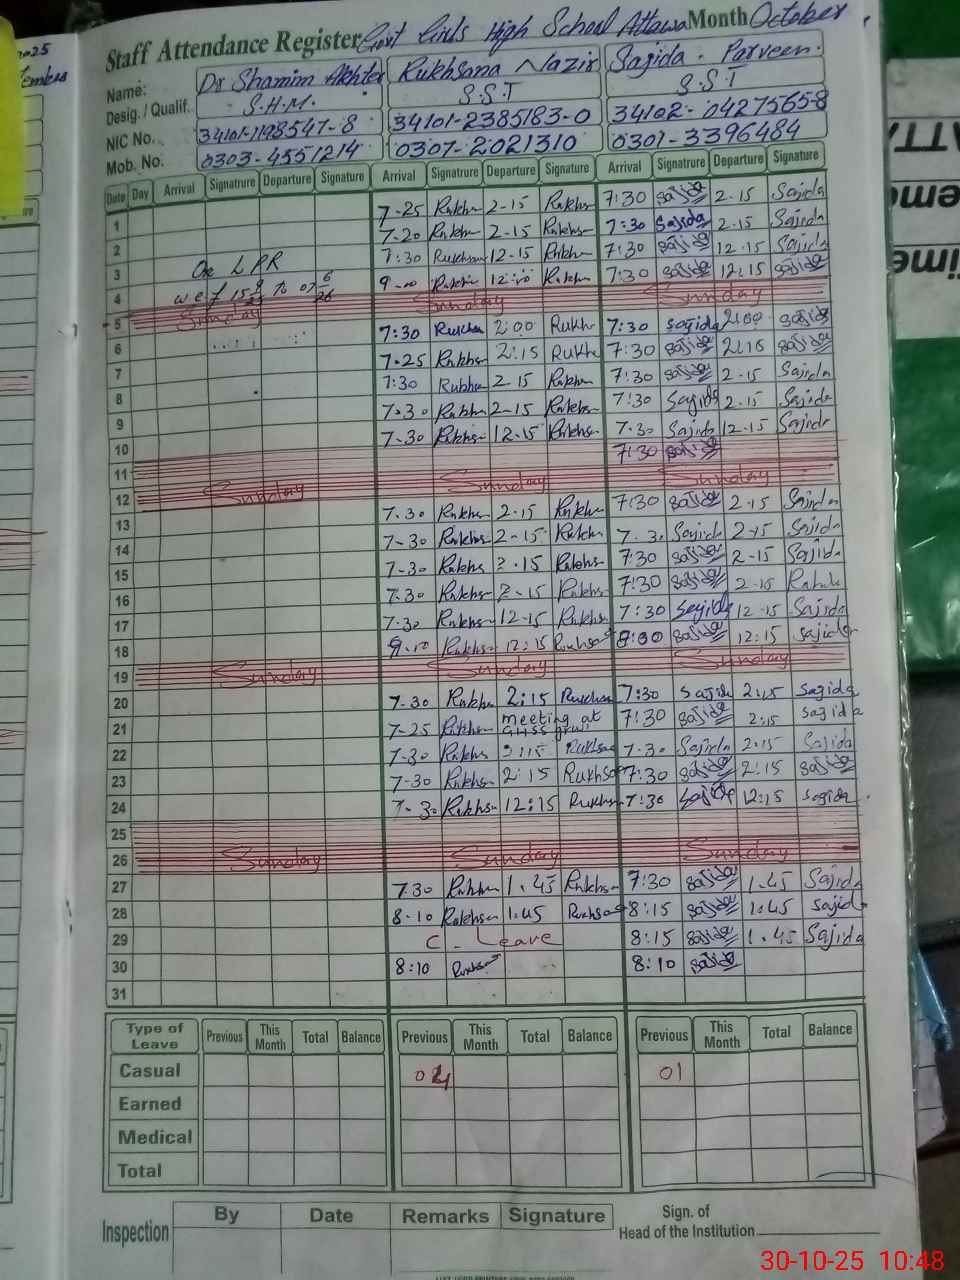 2025
Staff Attendance Register Govt Girls High School Attawa Month October
Name: Dr Shamim Akhter Rukhsana Nazir Sajida. Parveen.
Desig. / Qualif. S.H.M. S.S.T S.S.T
NIC No. 34101-1198547-8 34101-2385183-0 34102-04275658
Mob. No. 0303-4551214 0307-2021310 0301-3396484
Date Day Arrival Signature Departure Signature Arrival Signature Departure Signature Arrival Signature Departure Signature
1 7-25 Rukhs 2-15 Rukhs 7:30 Sajida 2.15 Sajida
2 7-20 Rukhs 2-15 Rukhs 7:30 Sajida 2.15 Sajida
3 On LPR 7:30 Rukhsan 12-15 Rukhs 7:30 Sajida 12.15 Sajida
4 wef 15 To 07 9-00 Rukhs 7:30 Sajida 12:15 Sajida
5 Sunday Sunday Sunday
6 7:30 Rukhsa 2:00 Rukh 7:30 Sajida 2:00 Sajida
7 7.25 Rukhs 2:15 Rukh 7:30 Sajida 2:15 Sajida
8 7:30 Rukhs 2.15 Rukhs 7:30 Sajida 2.15 Sajida
9 7-30 Rukhs 2-15 Rukhs 7:30 Sajida 2.15 Sajida
10 7-30 Rukhs 12.15 Rukhs 7.30 Sajida 12.15 Sajida
11 7:30 Sajida
12 Sunday Sunday Sunday
13 7.30 Rukhs 2.15 Rukhs 7:30 Sajida 2.15 Sajida
14 7-30 Rukhs 2-15 Rukhs Sajida 2.15 Sajida
15 7-30 Rukhs 2.15 Rukhs 7:30 Sajida 2-15 Sajida
16 7.30 Rukhs 2.15 Rukhs 7:30 Sajida 2.15
17 7-30 Rukhs 12-15 Rukhs 7:30 Sajida 12.15 Sajida
18 9.10 Rukhs 12:15 Rukhsa 8:00 Sajida 12:15 Sajida
19 Sunday Sunday Sunday
20 7-30 Rukhs 2:15 Rukhsa 7:30 Sajida 2:15 Sajida
21 7-25 Rukhs meeting at 7:30 Sajida 2:15 Sajida
22 7-30 Rukhs 2:15 Rukhsa 7-30 Sajida 2.15 Sajida
23 7-30 Rukhs 2:15 Rukhsa 7:30 Sajida 2:15 Sajida
24 7-30 Rukhs 12:15 Rukhs 7:30 Sajida 12:15 Sajida
25
26 Sunday Sunday Sunday
27 7.30 Rukhs 1.45 Rukhs 7:30 Sajida 1.45 Sajida
28 8-10 Rukhsa 1:45 Rukhsa 8:15 Sajida 1:45 Sajida
29 C. Leave 8:15 Sajida 1.45 Sajida
30 8:10 Rukhsa 8:10 Sajida
31
Type of Leave Previous This Month Total Balance Previous This Month Total Balance Previous This Month Total Balance
Casual 04 01
Earned
Medical
Total
Inspection By Date Remarks Signature Sign. of
Head of the Institution
30-10-25 10:48